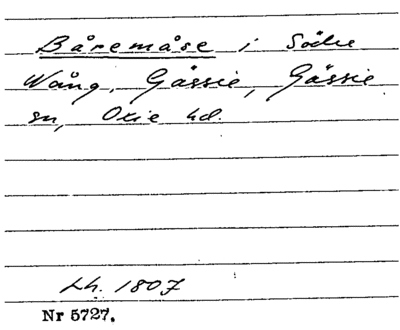 Båremåse i Södre
Wång, Gässie, Gässie
sn, Oxie hd.
Lh. 1807
Nr 5727.